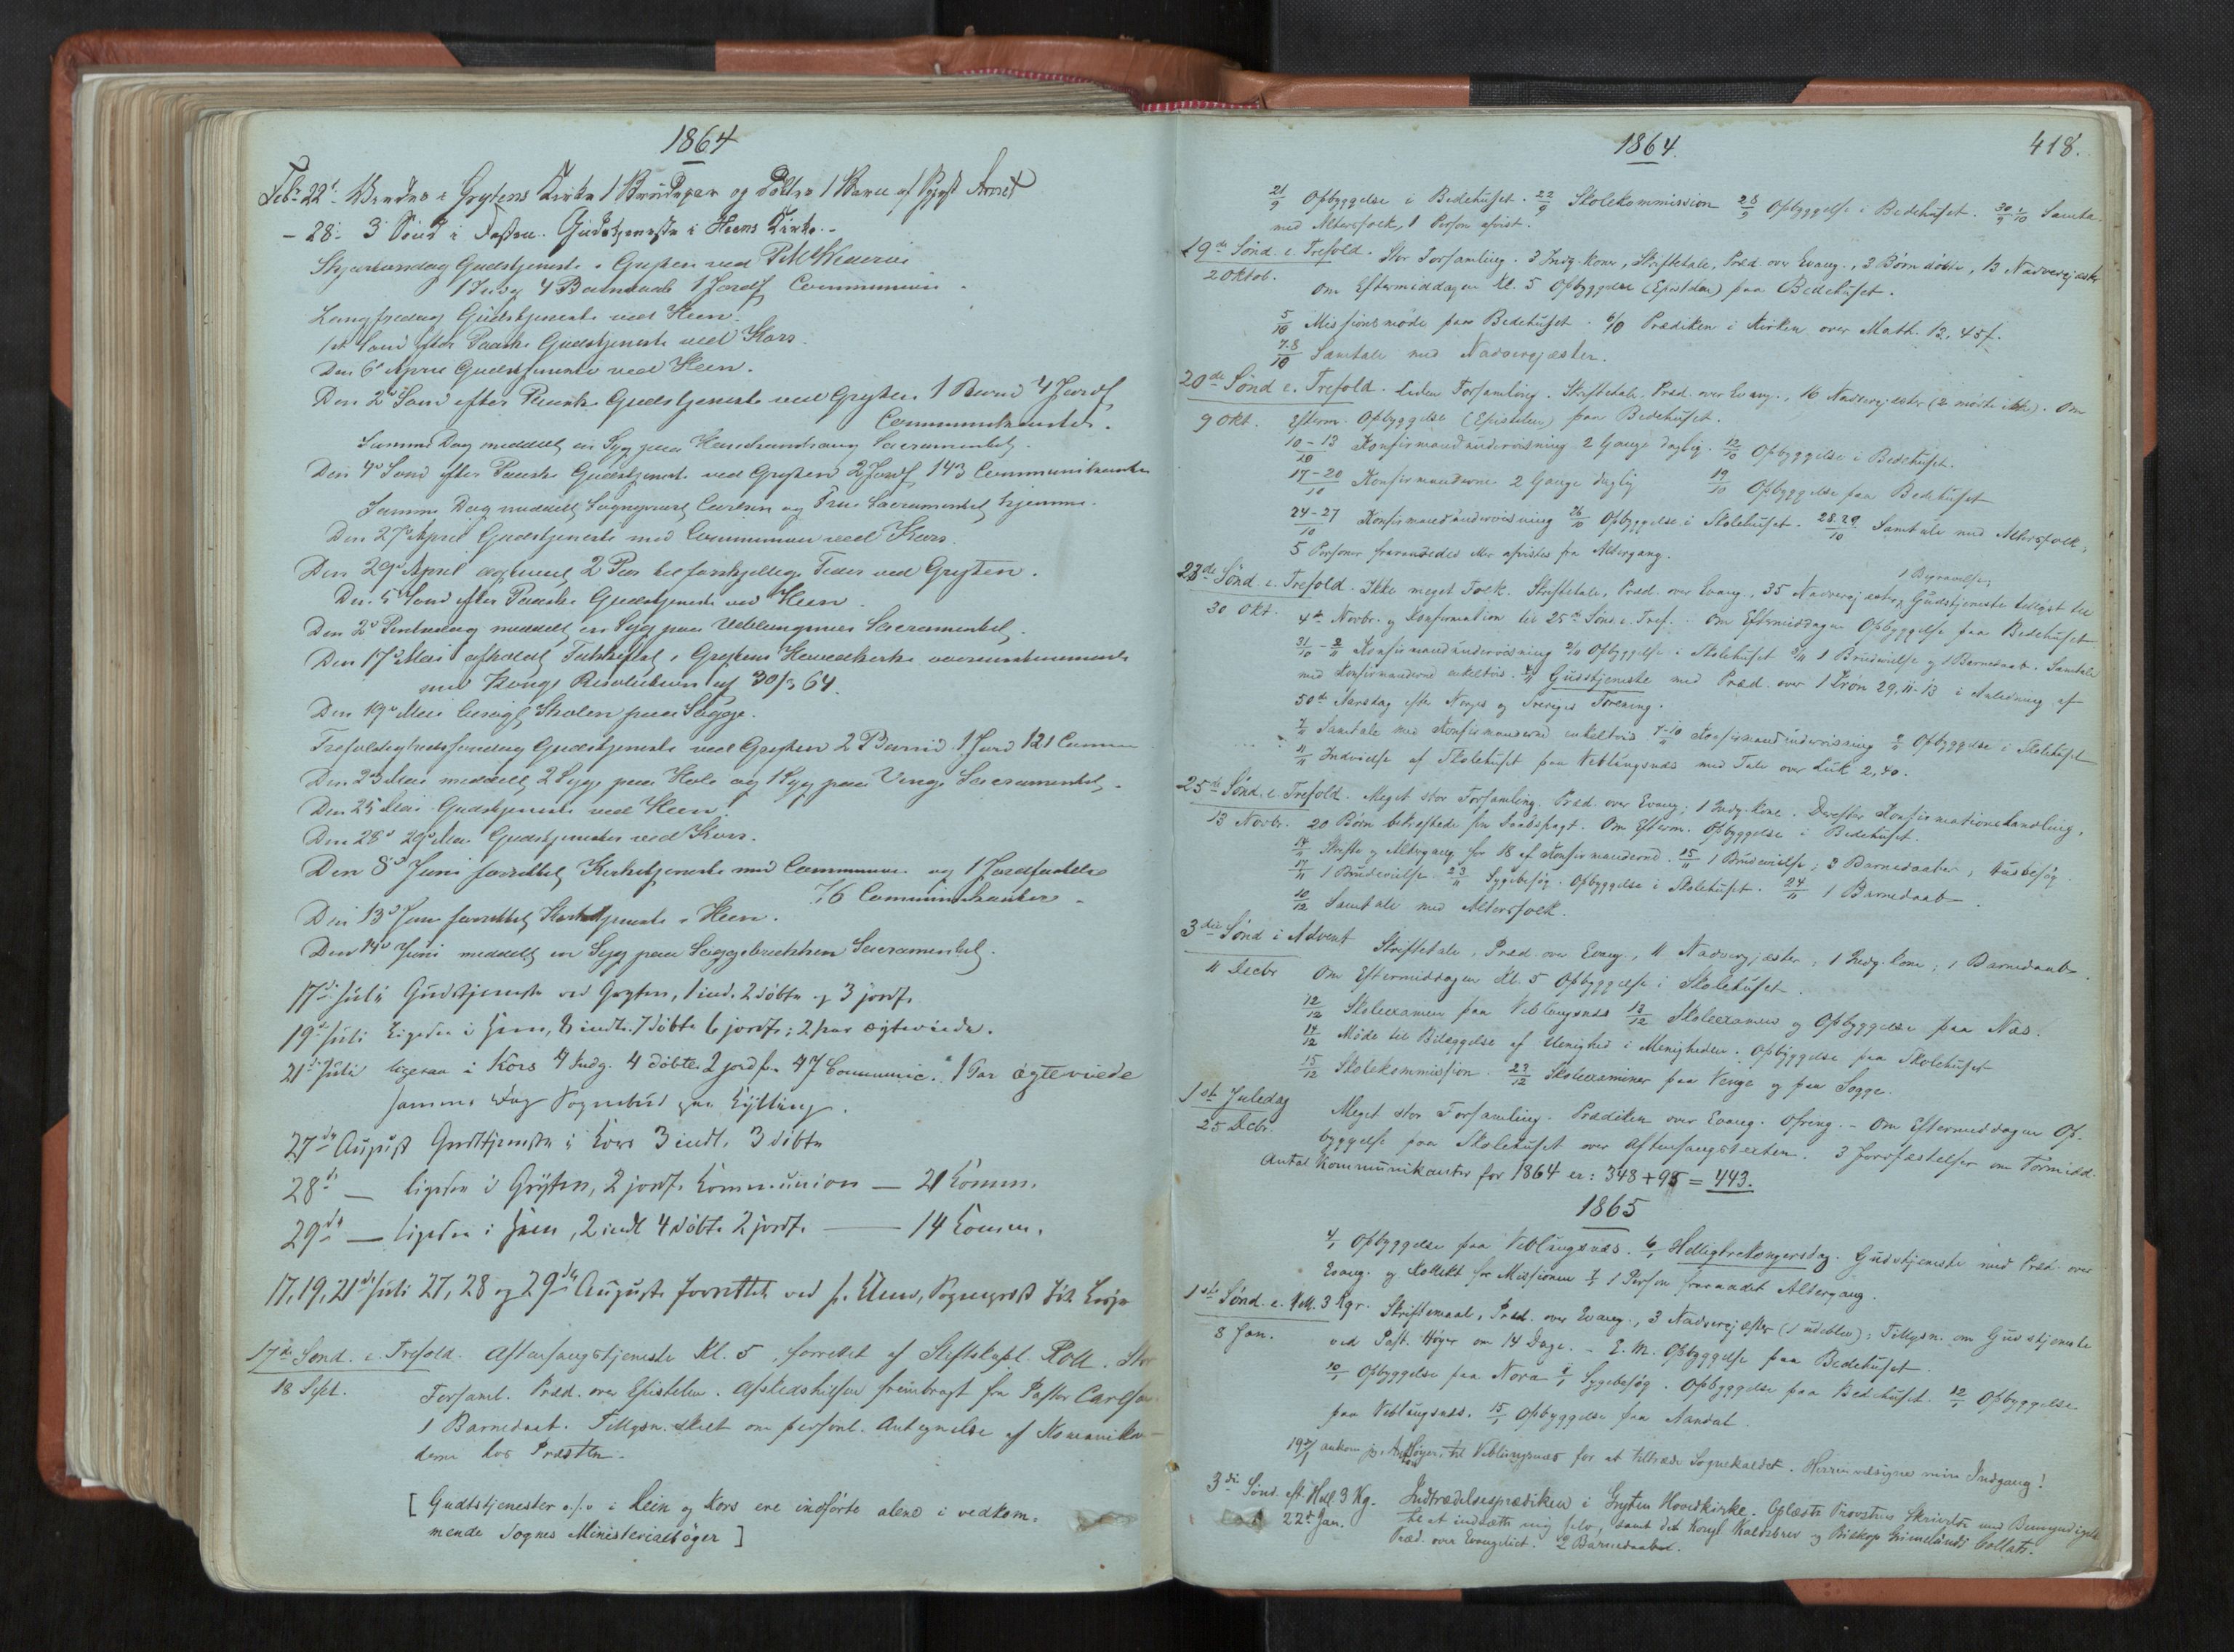 1864
Febr 22d Viedes i Grytens Kirke 1 Brudepar og døbtes 1 Barn af
- 28: 3 Sønd i Fasten. Gudstjeneste i Heens Kirke.
Skjærtorsdag Gudstjeneste i Gryten ved
1 Indg 4 Barnedaab 1 Jordf Communion.
Langfredag Gudstjeneste ved Heen.
1st Sønd efter Paaske Gudstjeneste ved Kors.
Den 6te April Gudstjeneste ved Heen.
Den 2d Sønd efter Paaske Gudstjeneste ved Gryten 1 Barnd 4 Jordf
Communikanter.
Samme Dag meddelt en Syg paa Sacramentet.
Den 4d Sønd efter Paaske Gudstjeneste ved Gryten 2 Jordf 143 Communikanter
Samme Dag meddelt Sognepræst Carlsen og Frue Sacramentet hjemme.
Den 27d April Gudstjeneste med Communion ved Kors.
Den 29d April ægteviet 2 Par til forskjellige Tider ved Gryten.
Den 5d Sønd efter Paaske Gudstjeneste ved Heen
Den 2d Pintsedag meddelt en Syg paa Veblungsnæs Sacramentet.
Den 17d Mai afholdt Takkefest i Grytens Hovedkirke overensstemmende
med Kongl Resolution af 30/3 64.
Den 19d Mai besøgt Skolen paa Sogge.
Trefoldighedssøndag Gudstjeneste ved Gryten 2 Barnd. 1 Jord 121 Commun
Den 23 Mai meddelt 2 Syge paa Hole og 1 Syg paa Venge Sacramentet.
Den 25 Mai Gudstjeneste ved Heen.
Den 28d 29d Mai Gudstjenester ved Kors.
Den 8d Juni forrettet Kirketjeneste med Communion og 1 Jordfæstelse
76 Communikanter.
Den 13d Juni forrettet Kirketjeneste i Heen.
Den 14d Juni meddelt en Syg paa Soggebrækken Sacramentet.
17de Juli Gudstjeneste ved Gryten, 1 ind. 2 døbte og 3 jordf.
19de Juli ligesaa i Heen, 8 indl. 7 døbte 6 jordf.; 2 par ægteviede.
21de Juli ligesaa i Kors 4 Indg. 4 døbte 2 jordf. 47 Communic. 1 Par ægteviede
samme Dag Sognebud paa Kylling.
27de August Gudstjeneste i Kors 3 indl. 3 døbte
28de — ligesaa i Gryten, 2 jordf. Kommunion — 21 Komm.
29de — ligesaa i Heen, 2 indl 4 døbte 2 jordf. — 14 Komm.
17, 19, 21de Juli 27, 28 og 29de August forrettet ved Sognepræst til
17de Sønd. e. Trefold. Aftensangstjeneste Kl. 5, forrettet af Stiftskapl. Roll. Stor
18 Sept. Forsaml. Præd. over Epistelen. Afskedshilsen frembragt fra Pastor Carlsen
1 Barnedaab. Tillysn. skeet om personl. Antegnelse af Komunikan-
derne hos Præsten.
[Gudstjenester o.s.v i Hein og Kors ere indførte alene i vedkom-
mende Sognes Ministerialbøger]
1864.
418.
21/9 Opbyggelse i Bedehuset. 22/9 Skolekommission 28/9 Opbyggelse i Bedehuset. 30/9 1/10 Samta-
med Altersfolk, 1 Person afvist.
19de Sønd. e. Trefold. Stor Forsamling. 3 Indg. koner, Skriftetale, Præd. over Evang., 3 Børn døbte, 13 Nadvergjæster
2 Oktob. Om Eftermiddagen Kl. 5 Opbyggelse (Epistelen) paa Bedehuset.
5/10 Missionsmøde paa Bedehuset. 6/10 Prædiken i Kirken over Matth. 13, 45 f.
7.8/10 Samtale med Nadvergjæster.
20de Sønd e. Trefold. Liden Forsamling. Skriftetale, Præd. over Evang., 16 Nadvergjæster (2 mødte ikke). Om
9 Okt. Efterm. Opbyggelse (Epistelen) paa Bedehuset.
10-13/10 Konfirmandundervisning 2 Gange daglig. 12/10 Opbyggelse i Bedehuset.
17-20/10 Konfirmanderne 2 Gange daglig 19/10 Opbyggelse paa Bedehuset
24-27/10 Konfirmandundervisning 26/10 Opbyggelse i Skolehuset. 28.29/10 Samtale med Altersfolk,
5 Personer fraraadedes eller afvistes fra Altergang.
1 Begravelse,
23de Sønd. e. Trefold. Ikke meget Folk. Skriftetale, Præd. over Evang., 35 Nadvergjæster, Gudstjeneste tillyst til
30 Okt. 4de Novbr. og Konfirmation til 25de Sønd. e. Tref. Om Eftermiddagen Opbyggelse paa Bedehuset
31/10-3/11 Konfirmandundervisning 2/11 Opbyggelse i Skolehuset 3/11 1 Brudevielse og 1 Barnedaab. Samtale
med Konfirmanderne enkeltvis. 4/11 Gudstjeneste med Præd. over 1 Krøn 29, 11-13 i Anledning af
50de Aarsdag efter Norges og Sveriges Forening.
7/11 Samtale med Konfirmanderne enkeltvis 7-10/11 Konfirmandundervisning 9/11 Opbyggelse i Skolehuset
11/11 Indvielse af Skolehuset paa Veblungsnæs med Tale over Luk 2,40.
25de Sønd. e. Trefold. Meget stor Forsamling. Præd. over Evang.; 1 Indg. kone. Derefter Konfirmationshandling,
13 Novbr. 20 Børn bekræftede sin Daabspagt. Om Efterm. Opbyggelse i Bedehuset.
14/11 Skrifte og Altergang for 18 af Konfirmanderne. 15/11 1 Brudevielse; 3 Barnedaaber, Husbesøg
17/11 1 Brudevielse 23/11 Sygebesøg. Opbyggelse i Skolehuset. 24/11 1 Barnedaab.
10/12 Samtale med Altersfolk.
3die Sønd i Advent Skriftetale, Præd. over Evang., 11 Nadvergjæster, 1 Indg. kone; 1 Barnedaab.
11 Decbr Om Eftermiddagen Kl. 5 Opbyggelse i Skolehuset.
12/12 Skoleexamen paa Veblungsnæs 13/12 Skoleexamen og Opbyggelse paa Næs.
14/12 Møde til Bilæggelse af Uenighed i Menigheden. Opbyggelse paa Skolehuset
15/12 Skolekommission. 23/12 Skoleexaminer paa Venge og paa Sogge.
1ste Juledag Meget stor Forsamling. Prædiken over Evang. Ofring. - Om Eftermiddagen Op-
25 Decbr. byggelse paa Skolehuset over Aftensangstexten. 3 Jordfæstelser om Formidd.
Antal Kommunikanter for 1864 er: 348 + 95 = 443.
1865
4/1 Opbyggelse paa Veblungsnæs. 6/1 Helligtrekongersdag. Gudstjeneste med Præd. over
Evang. og Kollekt for Missionen 7/1 1 Person fraraadet Altergang.
1ste Sønd. e. Hell. 3 Kgr. Skriftemaal, Præd. over Evang., 3 Nadvergjæster (1 udeblev); Tillysn. om Gudstjeneste
8 Jan. ved Past. Høyer om 14 Dage. - E. M. Opbyggelse paa Bedehuset.
10/1 Opbyggelse paa Nora 11/1 Sygebesøg. Opbyggelse paa Bedehuset. 12/1 Opbyggelse
paa Veblungsnæs. 15/1 Opbyggelse paa Aandal.
19de/1 ankom jeg, Høyer, til Veblungsnæs for at tiltræde Sognekaldet. Herren velsigne min Indgang!
3die Sønd. eft. Hell. 3 Kg. Indtrædelsesprædiken i Gryten Hovedkirke. Oplæste Provstens Skrivelse med Bemyndigelse
22de Jan. til at indsætte mig selv, samt det Kongl. Kaldsbrev og Biskop Grimelunds Collats.
Præd. over Evangeliet. 2 Barnedaab.